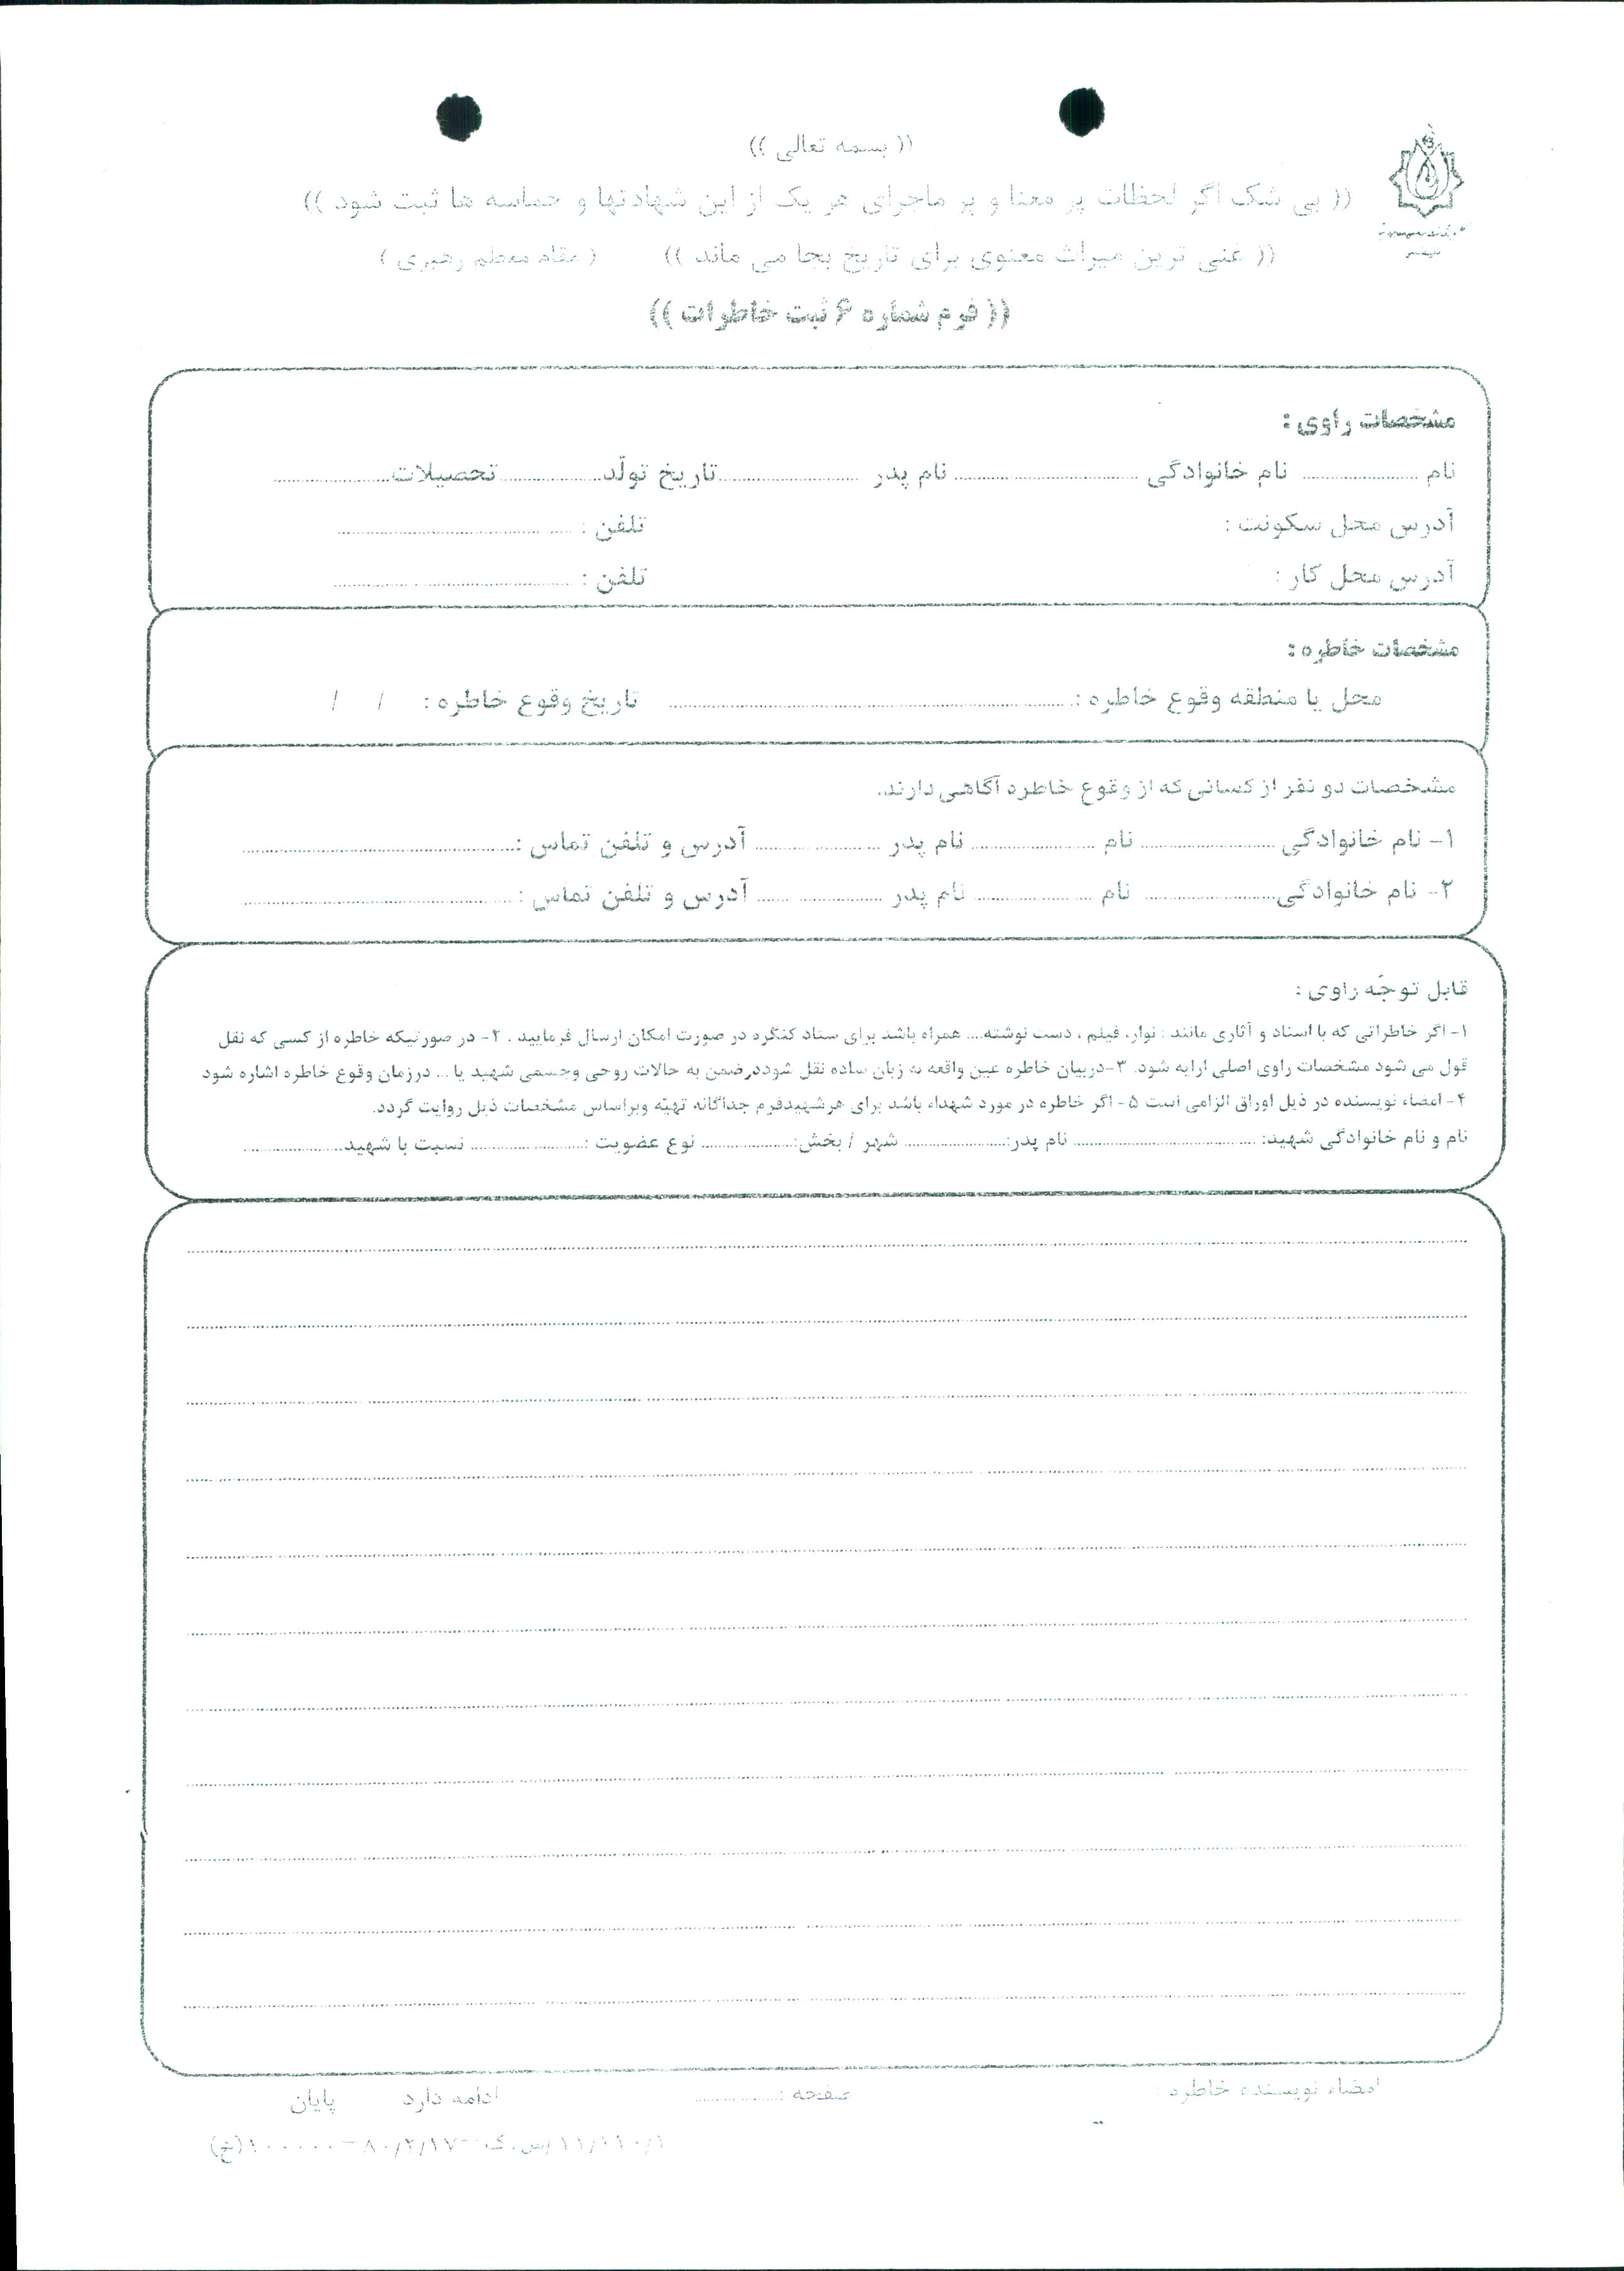 (( بسمه تعالی ))
(( بی شک اگر لحظات پر معنا و پر ماجرای هر یک از این شهادتها و حماسه ها ثبت شود ))
(( غنی ترین میراث معنوی برای تاریخ بجا می ماند )) ( مقام معظم رهبری )
(( فرم شماره ۶ ثبت خاطرات ))
مشخصات راوی :
نام ........ نام خانوادگی ........ نام پدر ........ تاریخ تولّد ........ تحصیلات ........
آدرس محل سکونت : تلفن : ........
آدرس محل کار : تلفن : ........
مشخصات خاطره :
محل یا منطقه وقوع خاطره : ........ تاریخ وقوع خاطره : / /
مشخصات دو نفر از کسانی که از وقوع خاطره آگاهی دارند.
۱- نام خانوادگی ........ نام ........ نام پدر ........ آدرس و تلفن تماس : ........
۲- نام خانوادگی ........ نام ........ نام پدر ........ آدرس و تلفن تماس : ........
قابل توجّه راوی :
۱- اگر خاطراتی که با اسناد و آثاری مانند : نوار، فیلم ، دست نوشته.... همراه باشد برای ستاد کنگره در صورت امکان ارسال فرمایید . ۲- در صورتیکه خاطره از کسی که نقل
قول می شود مشخصات راوی اصلی ارایه شود. ۳-دربیان خاطره عین واقعه به زبان ساده نقل شوددرضمن به حالات روحی وجسمی شهید یا ... درزمان وقوع خاطره اشاره شود
۴- امضاء نویسنده در ذیل اوراق الزامی است ۵- اگر خاطره در مورد شهداء باشد برای هرشهیدفرم جداگانه تهیّه وبراساس مشخصات ذیل روایت گردد.
نام و نام خانوادگی شهید: ........ نام پدر: ........ شهر / بخش: ........ نوع عضویت : ........ نسبت با شهید ........
امضاء نویسنده خاطره : صفحه : ........ ادامه دارد پایان